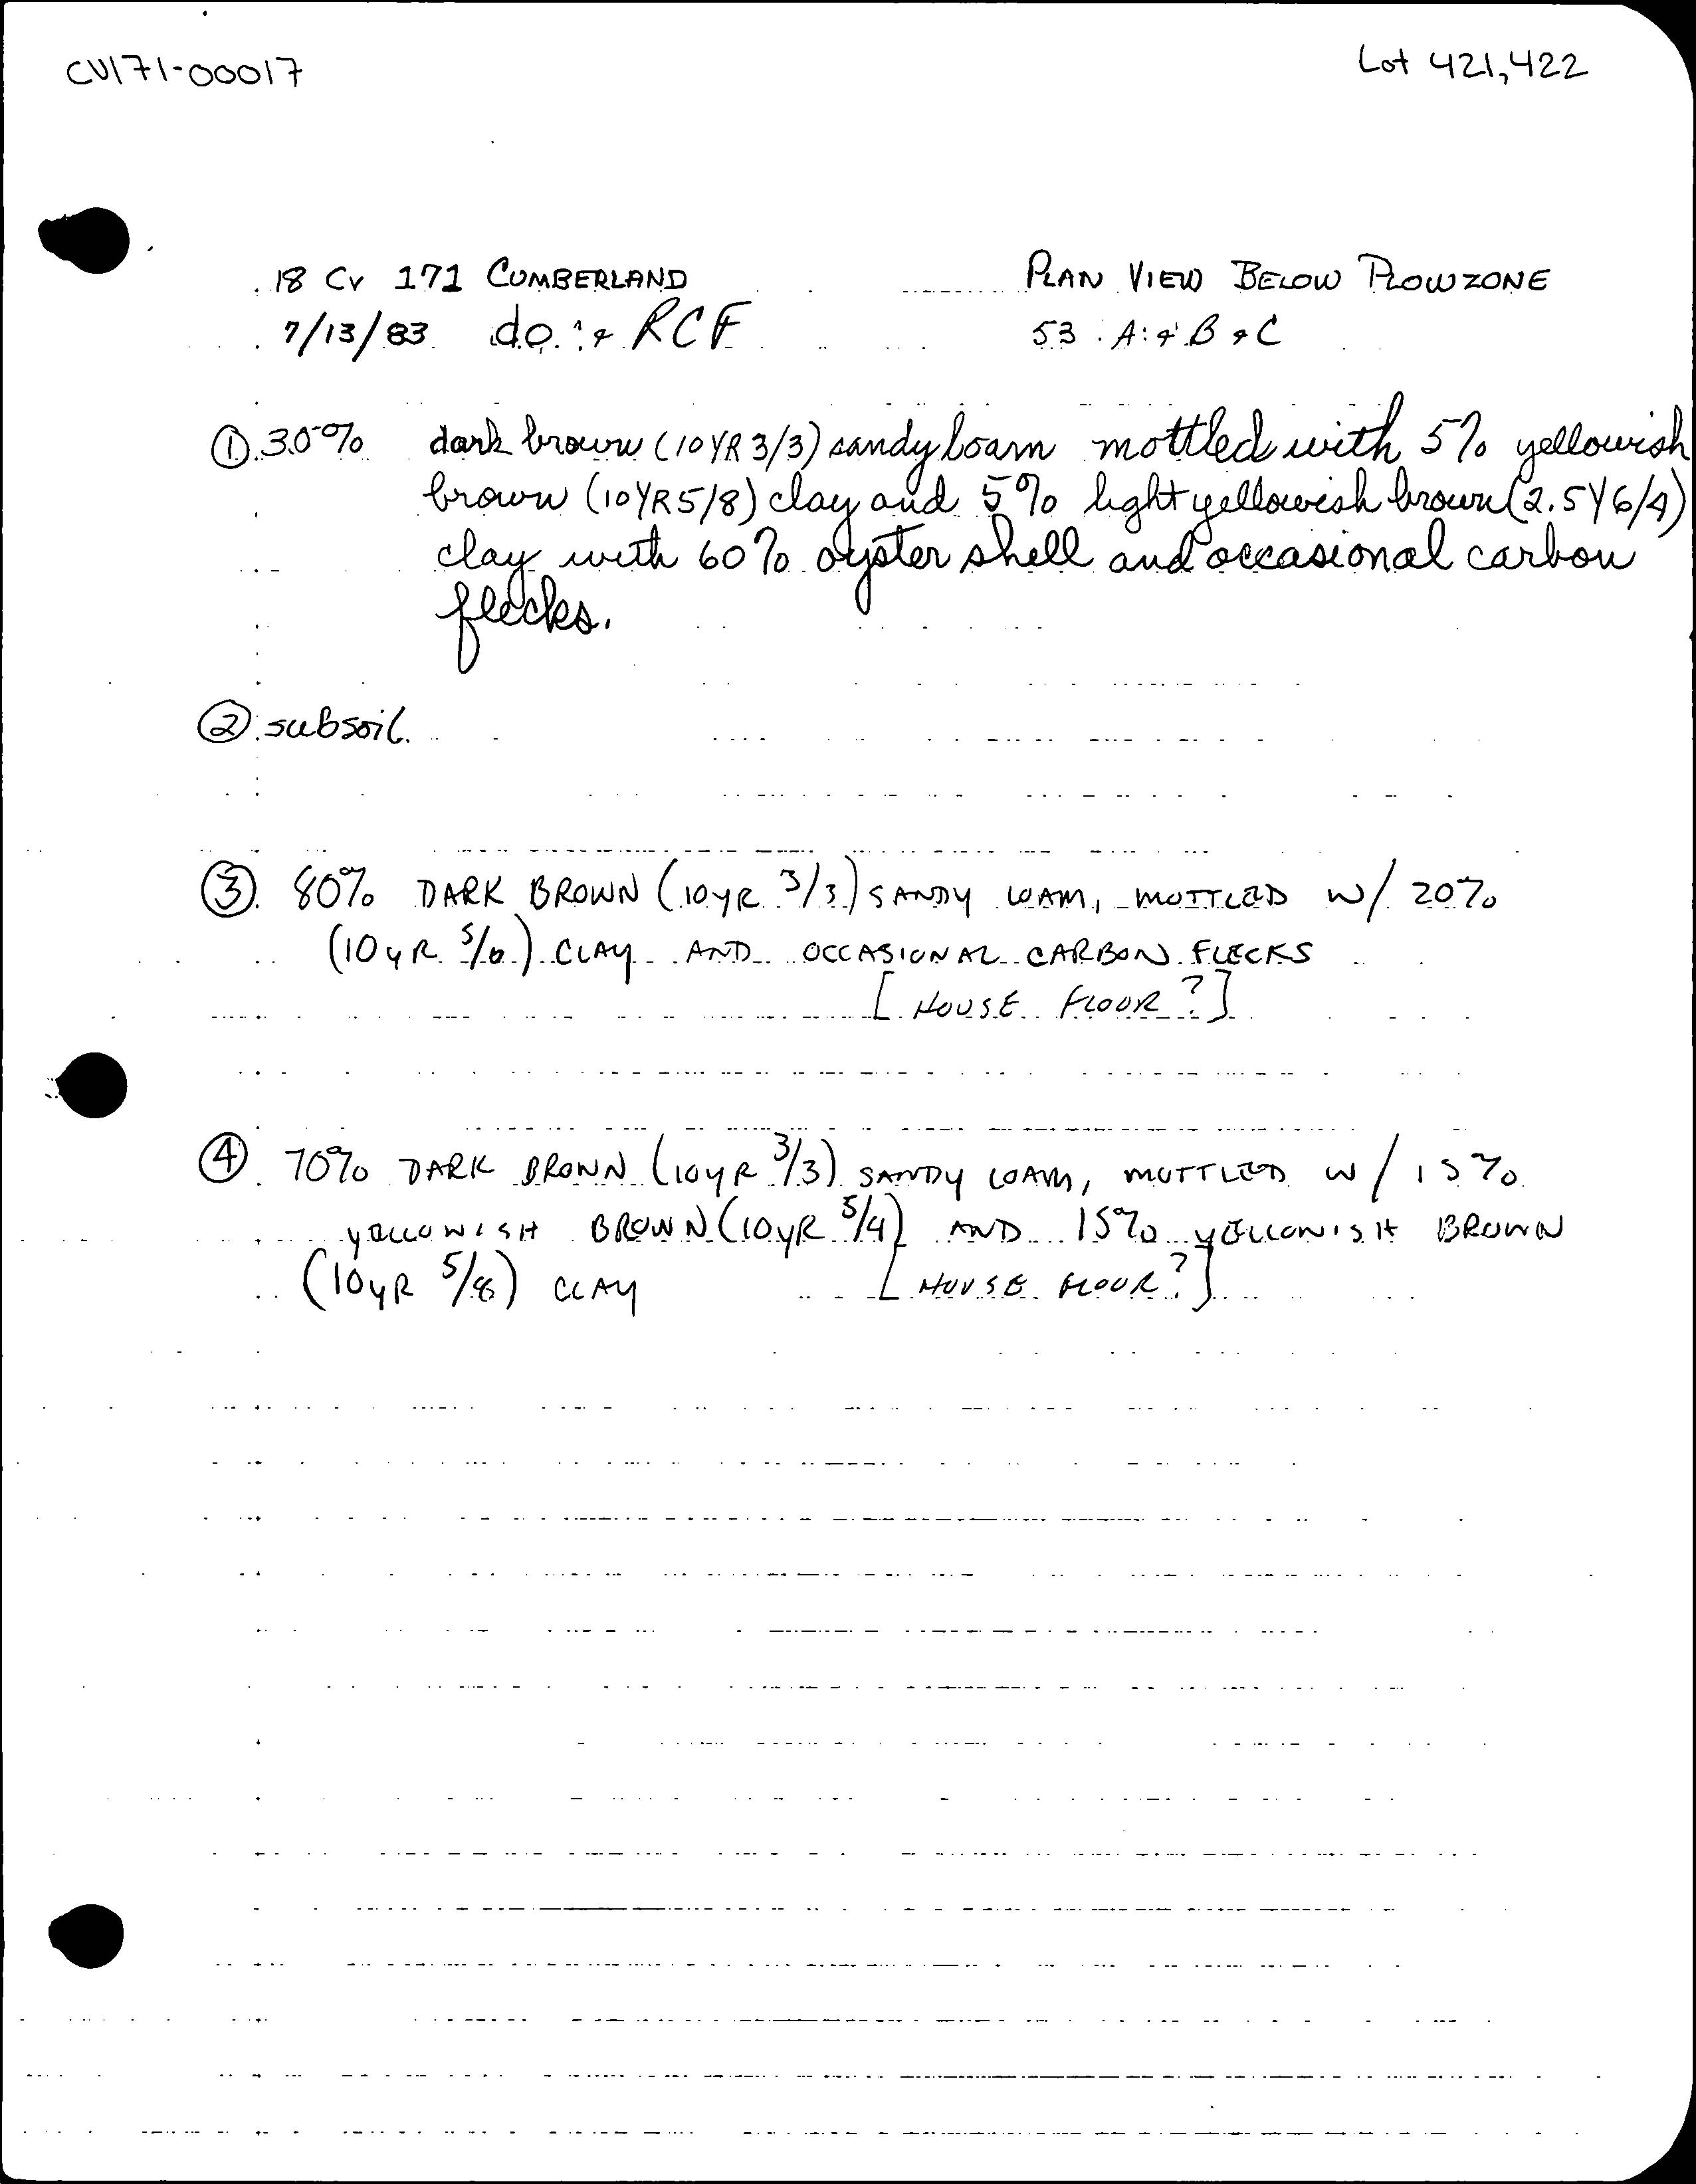 CV171-00017
Lot 421,422
18 Cv 171 CUMBERLAND
PLAN VIEW BELOW PLOWZONE
7/13/83 d.o. & RCF
53 A & B & C
① 30% dark brown (10YR 3/3) sandy loam mottled with 5% yellowish
brown (10YR5/8) clay and 5% light yellowish brown (2.5Y6/4)
clay with 60% oyster shell and occasional carbon
flecks.
② subsoil.
③ 80% DARK BROWN (10YR 3/3) SANDY LOAM, MOTTLED W/ 20%
(10YR 5/6) CLAY AND OCCASIONAL CARBON FLECKS
[HOUSE FLOOR?]
④ 70% DARK BROWN (10YR 3/3) SANDY LOAM, MOTTLED W/ 15%
YELLOWISH BROWN (10YR 5/4) AND 15% YELLOWISH BROWN
(10YR 5/8) CLAY [HOUSE FLOOR?]